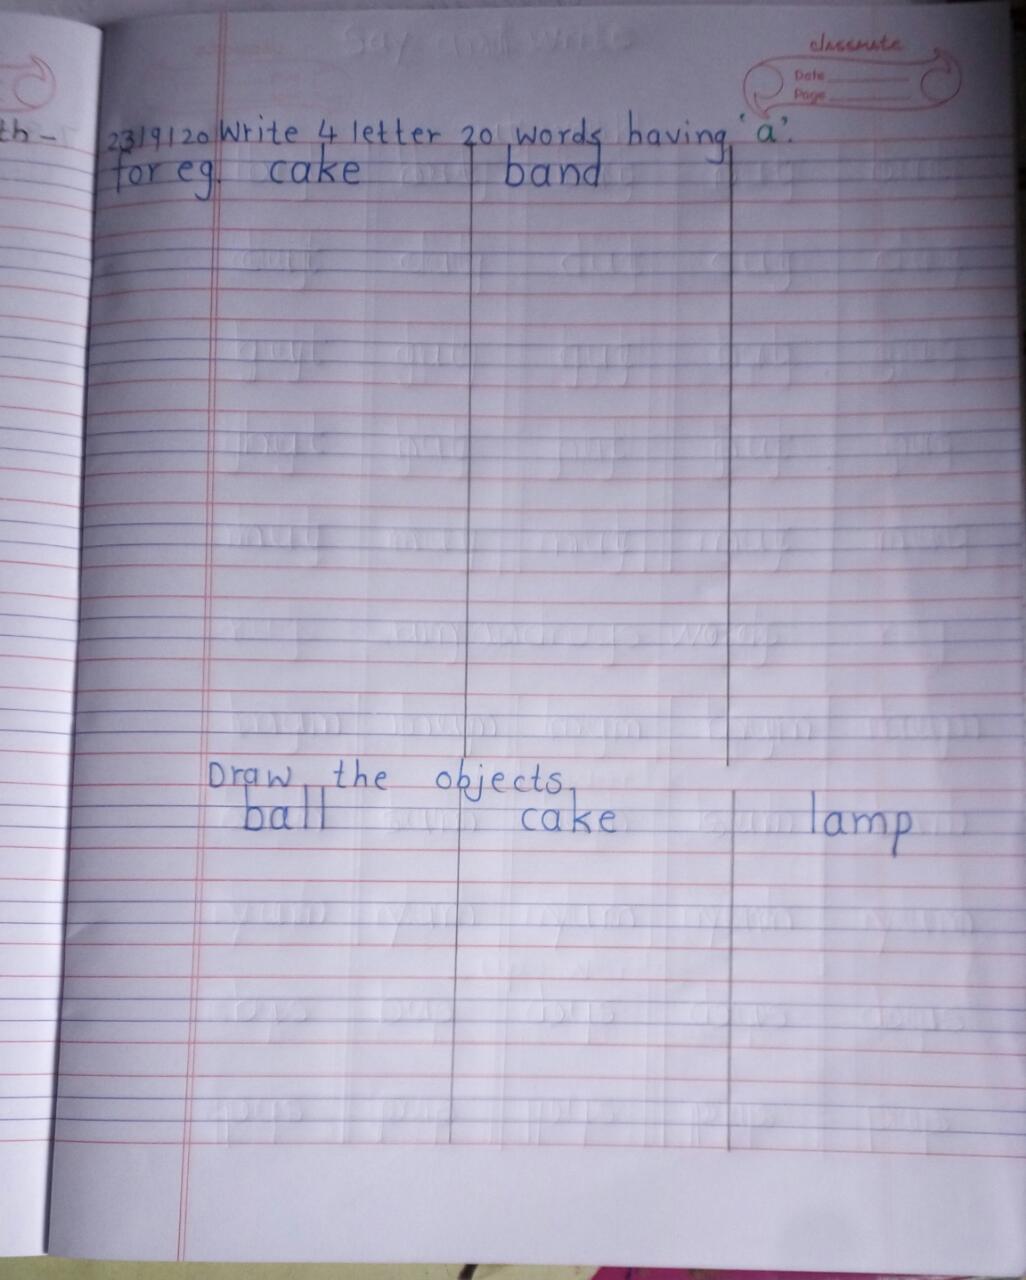 classmate
Date
Page
th-
23/9/20 Write 4 letter 20 words having 'a'.
for eg. cake band
Draw the objects.
ball cake lamp